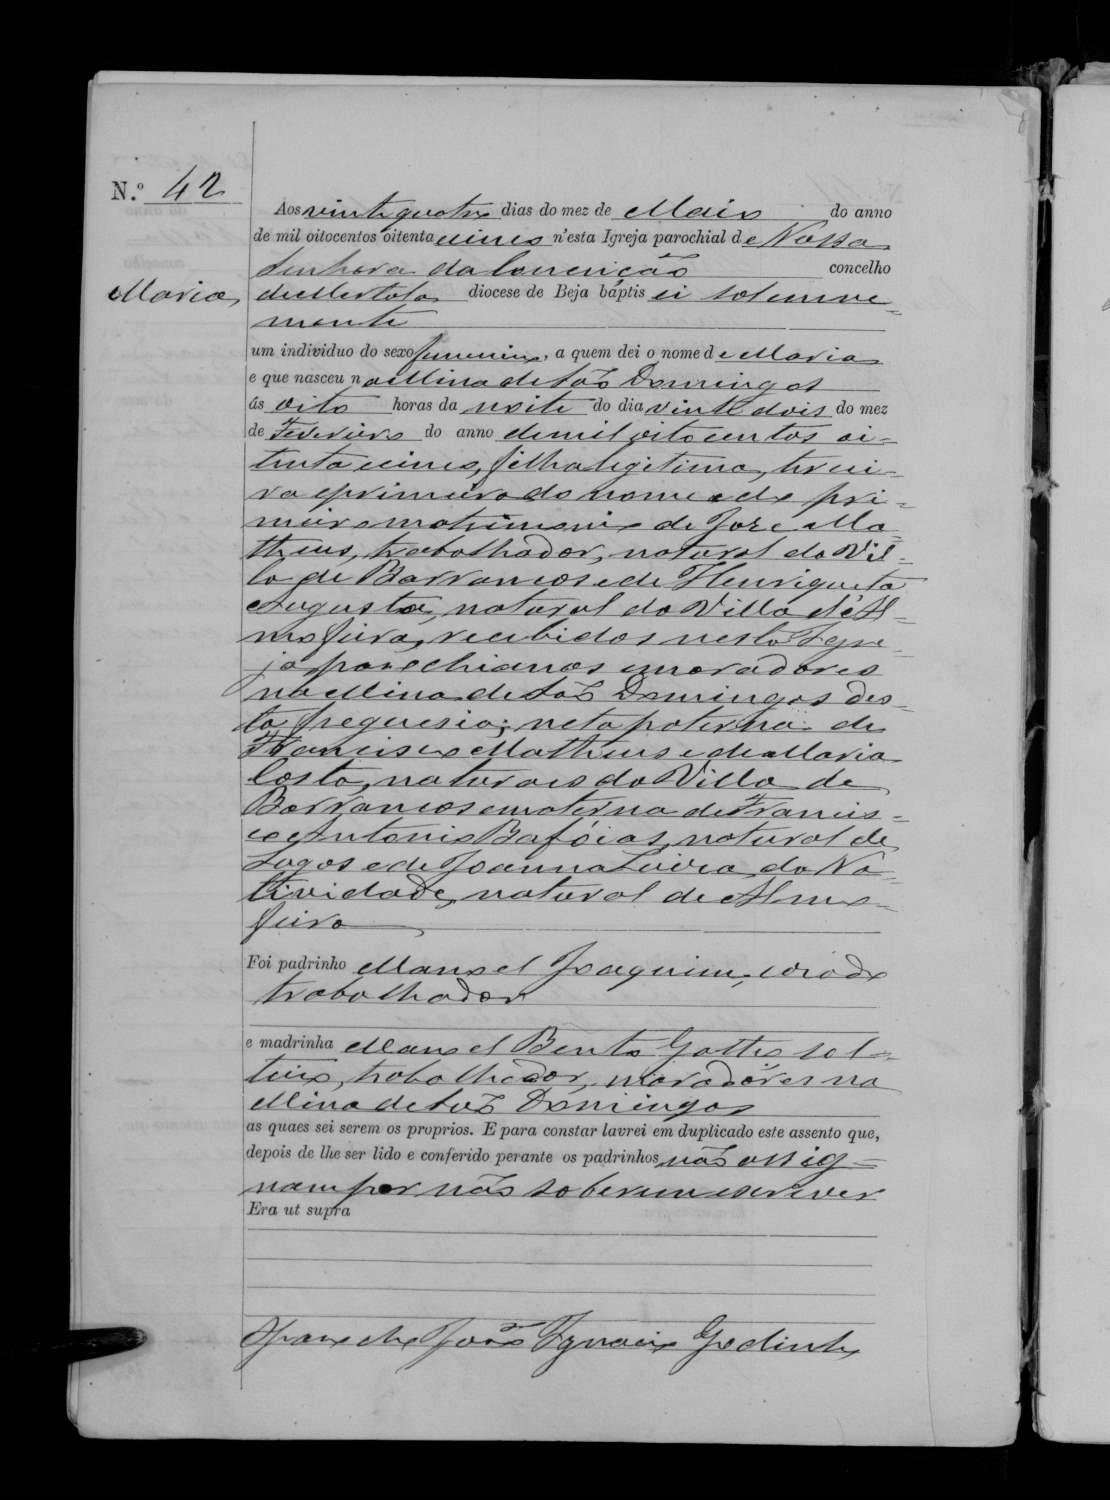 N.º 42
Maria
Aos vinte quatro dias do mez de Maio do anno
de mil oitocentos oitenta e cinco n'esta Igreja parochial de Nossa
Senhora da Conceição concelho
de Mertola diocese de Beja baptisei solemne-
mente
um individuo do sexo femenino, a quem dei o nome de Maria
e que nasceu na Mina de São Domingos
ás oito horas da noite do dia vinte dois do mez
de Fevereiro do anno de mil oito centos oi-
tenta e cinco, filha legitima, tercei-
ra e primeira do nome e do pri-
meiro matrimonio de José Ma-
theus, trabalhador, natural da Vil-
la de Barrancos e de Henriqueta
Augusta, natural da Villa d'Al-
mofeira, recebidos nesta Igre-
ja parochianos e moradores
na Mina de São Domingos des-
ta freguesia; neta paterna de
Francisco Matheus e de Maria
Costa, naturaes da Villa de
Barrancos e materna de Francis-
co Antonio Bafóias, natural de
Lagos e de Joanna Luiza da Na-
tividade, natural de Almo-
feira
Foi padrinho Manoel Joaquim, viado
trabalhador
e madrinha Manoel Bento sol-
teiro, trabalhador, moradores na
Mina de São Domingos
as quaes sei serem os proprios. E para constar lavrei em duplicado este assento que,
depois de lhe ser lido e conferido perante os padrinhos, não assig-
nam por não saberem escrever
Era ut supra
O parocho João Ignacio Godinho